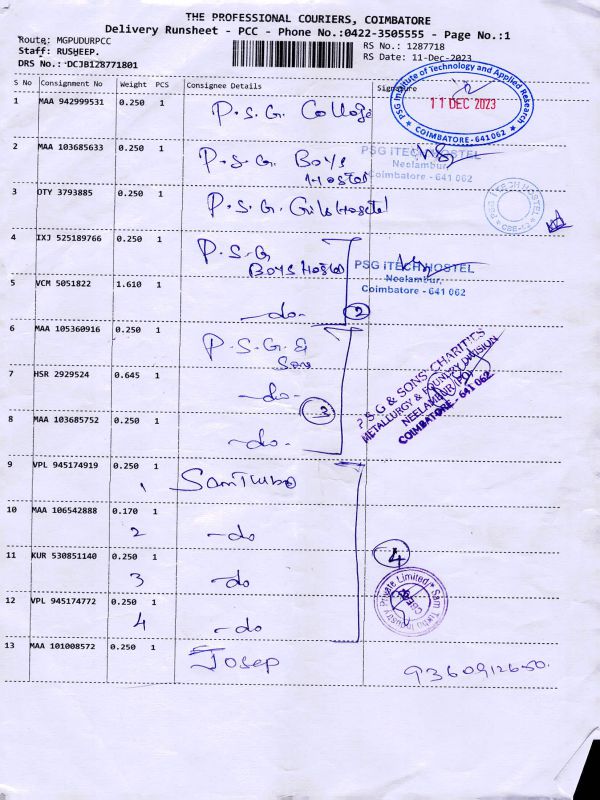 THE PROFESSIONAL COURIERS, COIMBATORE
Delivery Runsheet - PCC - Phone No.:0422-3505555 - Page No.:1
Route: MGPUDURPCC
RS No.: 1287718
Staff: RUSHEEP.
RS Date: 11-Dec-2023
DRS No.: DCJB128771801
S No Consignment No Weight PCS Consignee Details Signature
1 MAA 942999531 0.250 1 P.S.G. College
PSG Institute of Technology and Applied Research
11 DEC 2023
★ COIMBATORE - 641 062 ★
2 MAA 103685633 0.250 1 P.S.G. Boys
Hostel
PSG iTECH HOSTEL
Neelambur,
Coimbatore - 641 062
3 OTY 3793885 0.250 1 P.S.G. Girls Hostel
4 IXJ 525189766 0.250 1 P.S.G
Boys Hostel
PSG iTECH HOSTEL
Neelambur,
Coimbatore - 641 062
5 VCM 5051822 1.610 1 -do.
2
6 MAA 105360916 0.250 1 P.S.G. &
Sons
P S G & SONS' CHARITIES
METALLURGY & FOUNDRY DIVISION
NEELAMBUR (PO)
COIMBATORE - 641 062
7 HSR 2929524 0.645 1 -do-
3
8 MAA 103685752 0.250 1 -do-
9 VPL 945174919 0.250 1 Sam Turbo
1
10 MAA 106542888 0.170 1 -do
2
11 KUR 530851140 0.250 1 -do
3
4
12 VPL 945174772 0.250 1 -do
4
13 MAA 101008572 0.250 1 Josep
9360912650.